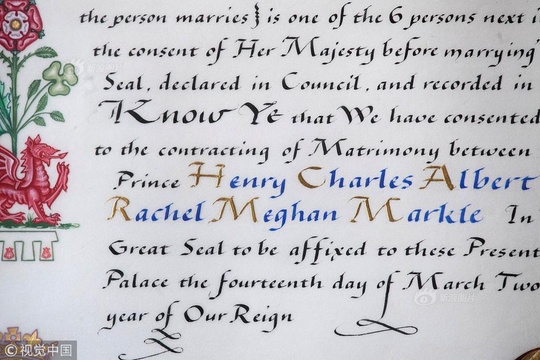 the person marries } is one of the 6 persons next i
the consent of Her Majesty before marrying
Seal, declared in Council, and recorded in
Know Ye that We have consented
to the contracting of Matrimony between
Prince Henry Charles Albert
Rachel Meghan Markle In
Great Seal to be affixed to these Present
Palace the fourteenth day of March Two
year of Our Reign
© 视觉中国